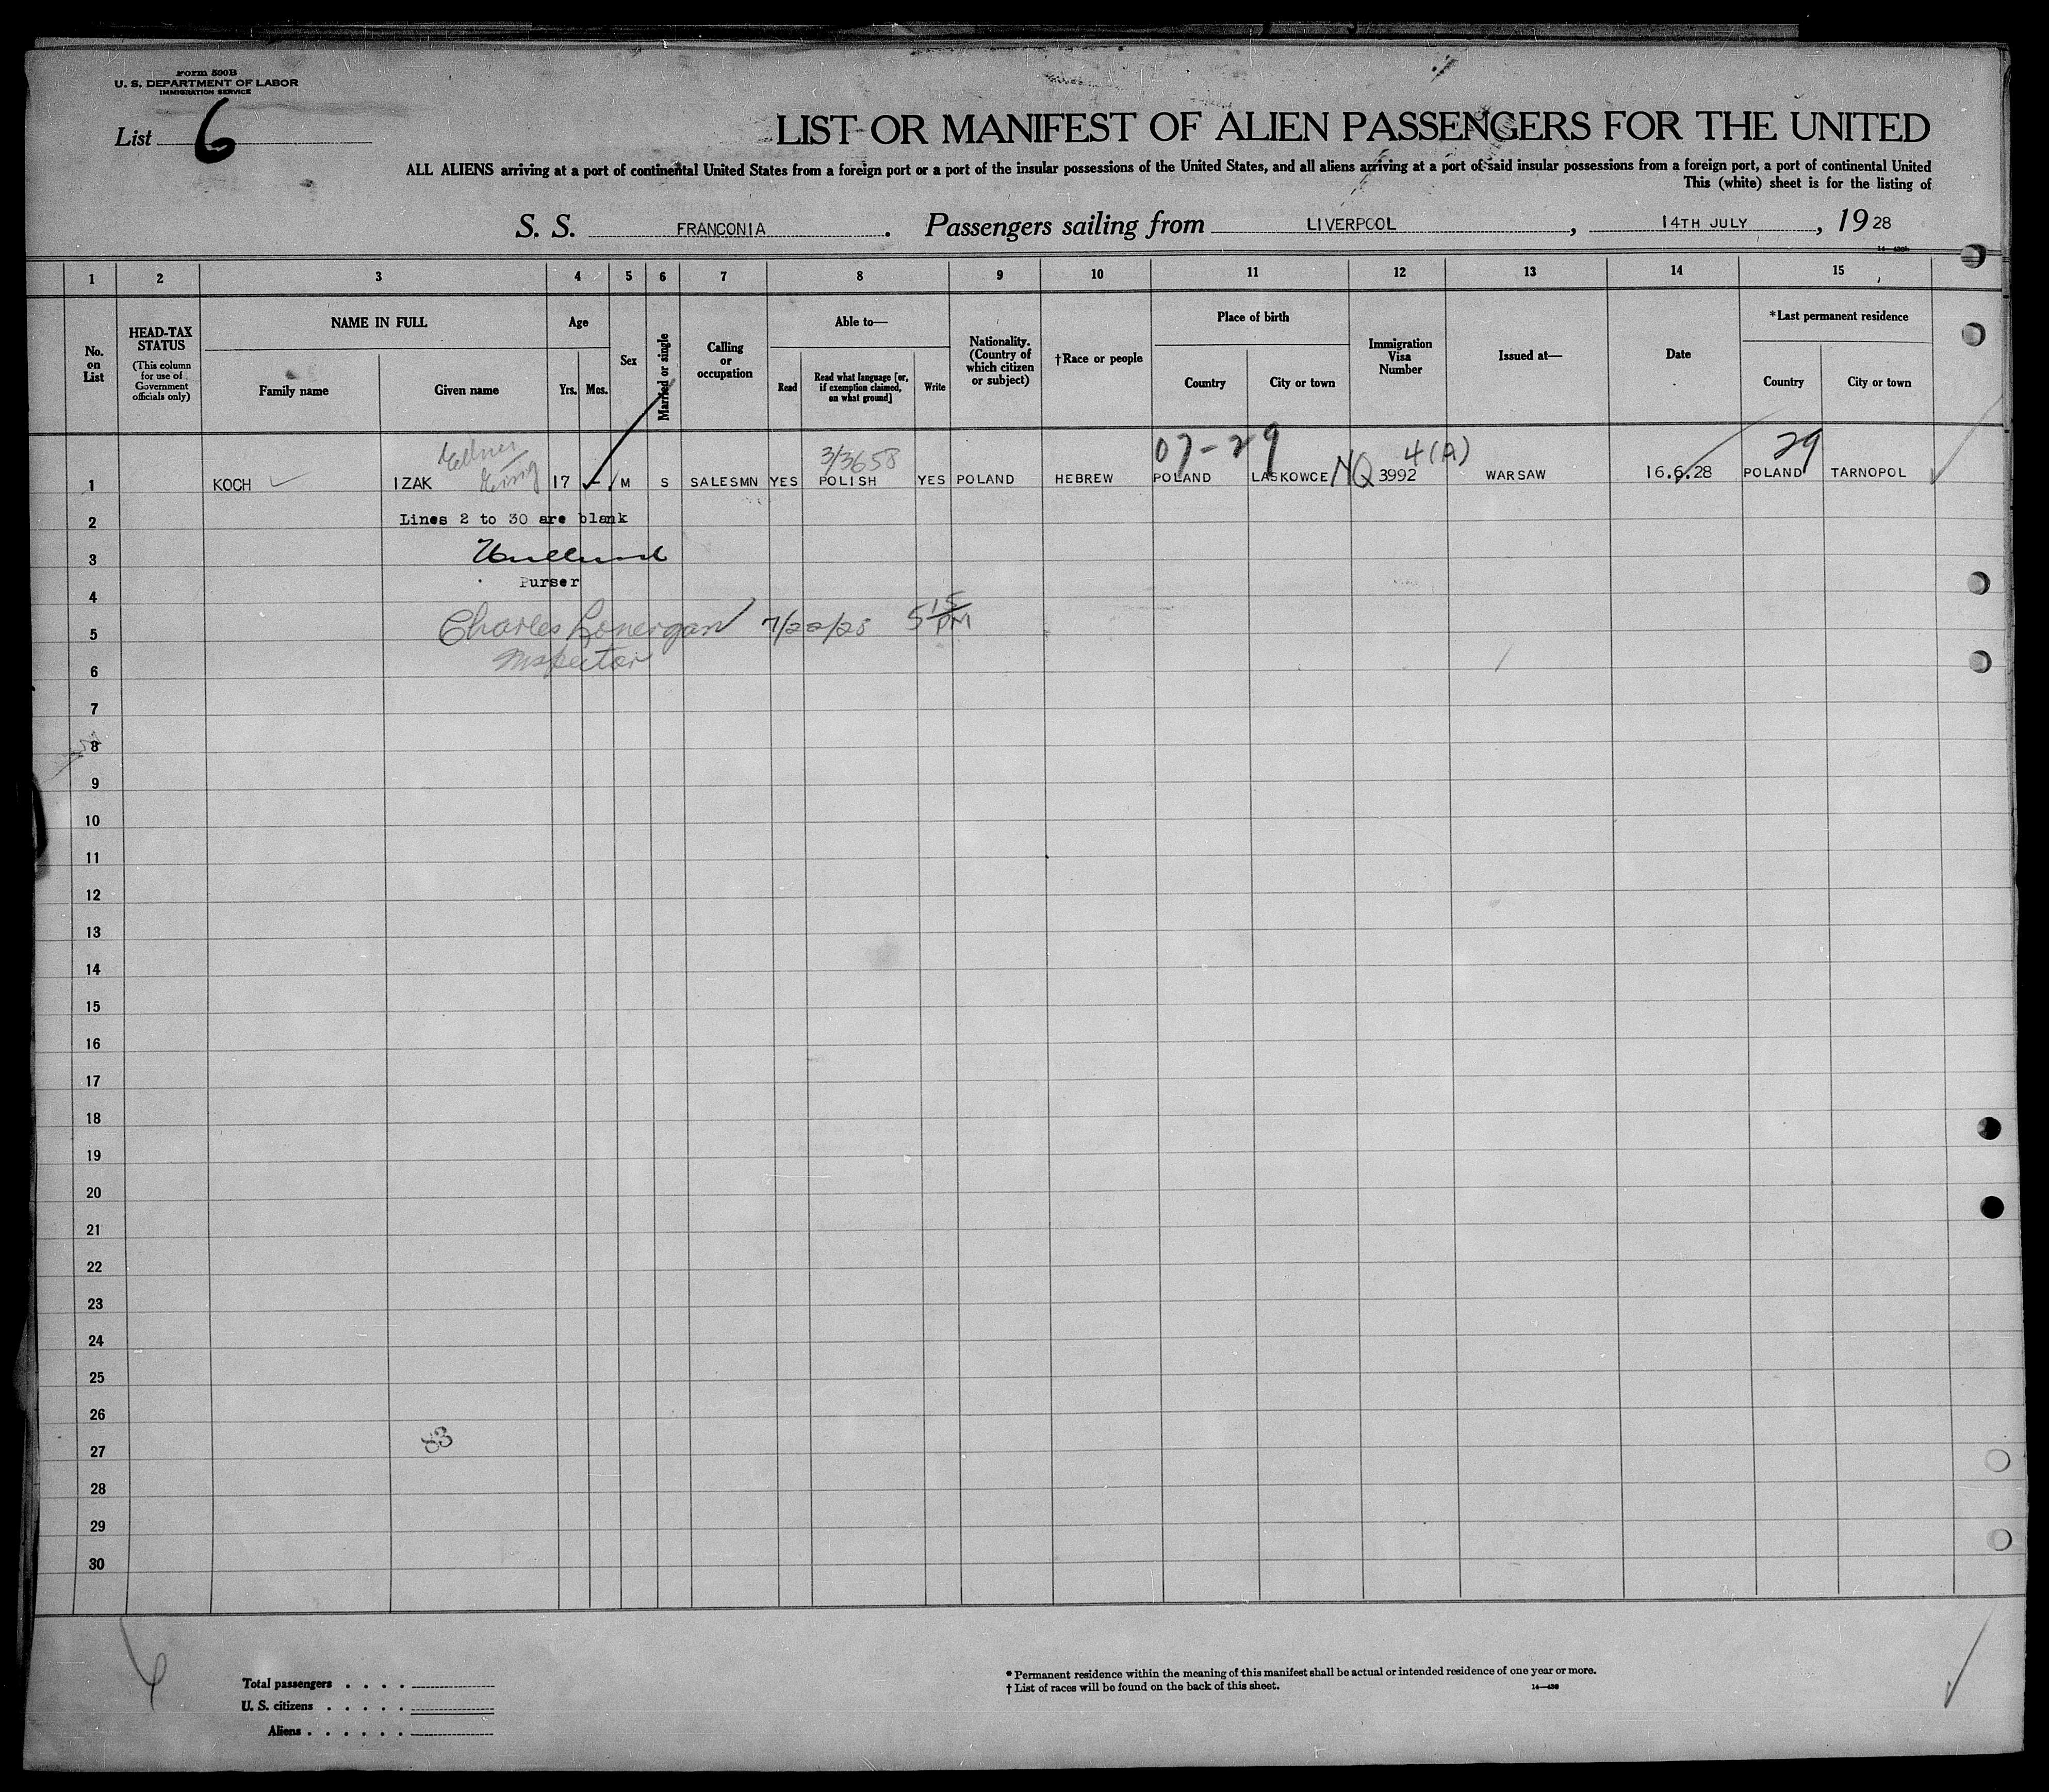 Form 500B
U. S. DEPARTMENT OF LABOR
IMMIGRATION SERVICE
List 6
LIST OR MANIFEST OF ALIEN PASSENGERS FOR THE UNITED
ALL ALIENS arriving at a port of continental United States from a foreign port or a port of the insular possessions of the United States, and all aliens arriving at a port of said insular possessions from a foreign port, a port of continental United
This (white) sheet is for the listing of
S. S. FRANCONIA. Passengers sailing from LIVERPOOL, 14TH JULY, 1928
1 2 3 4 5 6 7 8 9 10 11 12 13 14 15
No. on List
HEAD-TAX STATUS
(This column for use of Government officials only)
NAME IN FULL
Family name
Given name
Age
Yrs.
Mos.
Sex
Married or single
Calling or occupation
Able to—
Read
Read what language [or, if exemption claimed, on what ground]
Write
Nationality. (Country of which citizen or subject)
†Race or people
Place of birth
Country
City or town
Immigration Visa Number
Issued at—
Date
*Last permanent residence
Country
City or town
3/3658 07-29 4(A) 29
1 KOCH IZAK 17 - M S SALESMN YES POLISH YES POLAND HEBREW POLAND LASKOWCE NQ 3992 WARSAW 16.6.28 POLAND TARNOPOL
2 Lines 2 to 30 are blank
3
Purser
4
5 Charles Lonergan 7/22/28 5 15 PM
Inspector
6
7
8
9
10
11
12
13
14
15
16
17
18
19
20
21
22
23
24
25
26
83
27
28
29
30
6
Total passengers . . . .
U. S. citizens . . . . .
Aliens . . . . . .
* Permanent residence within the meaning of this manifest shall be actual or intended residence of one year or more.
† List of races will be found on the back of this sheet.